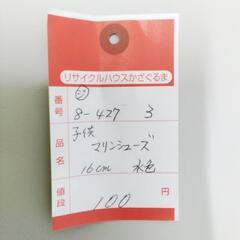 リサイクルハウスかざぐるま
番号
8-427 3
品名
子供
マリンシューズ
16cm 水色
値段
100 円